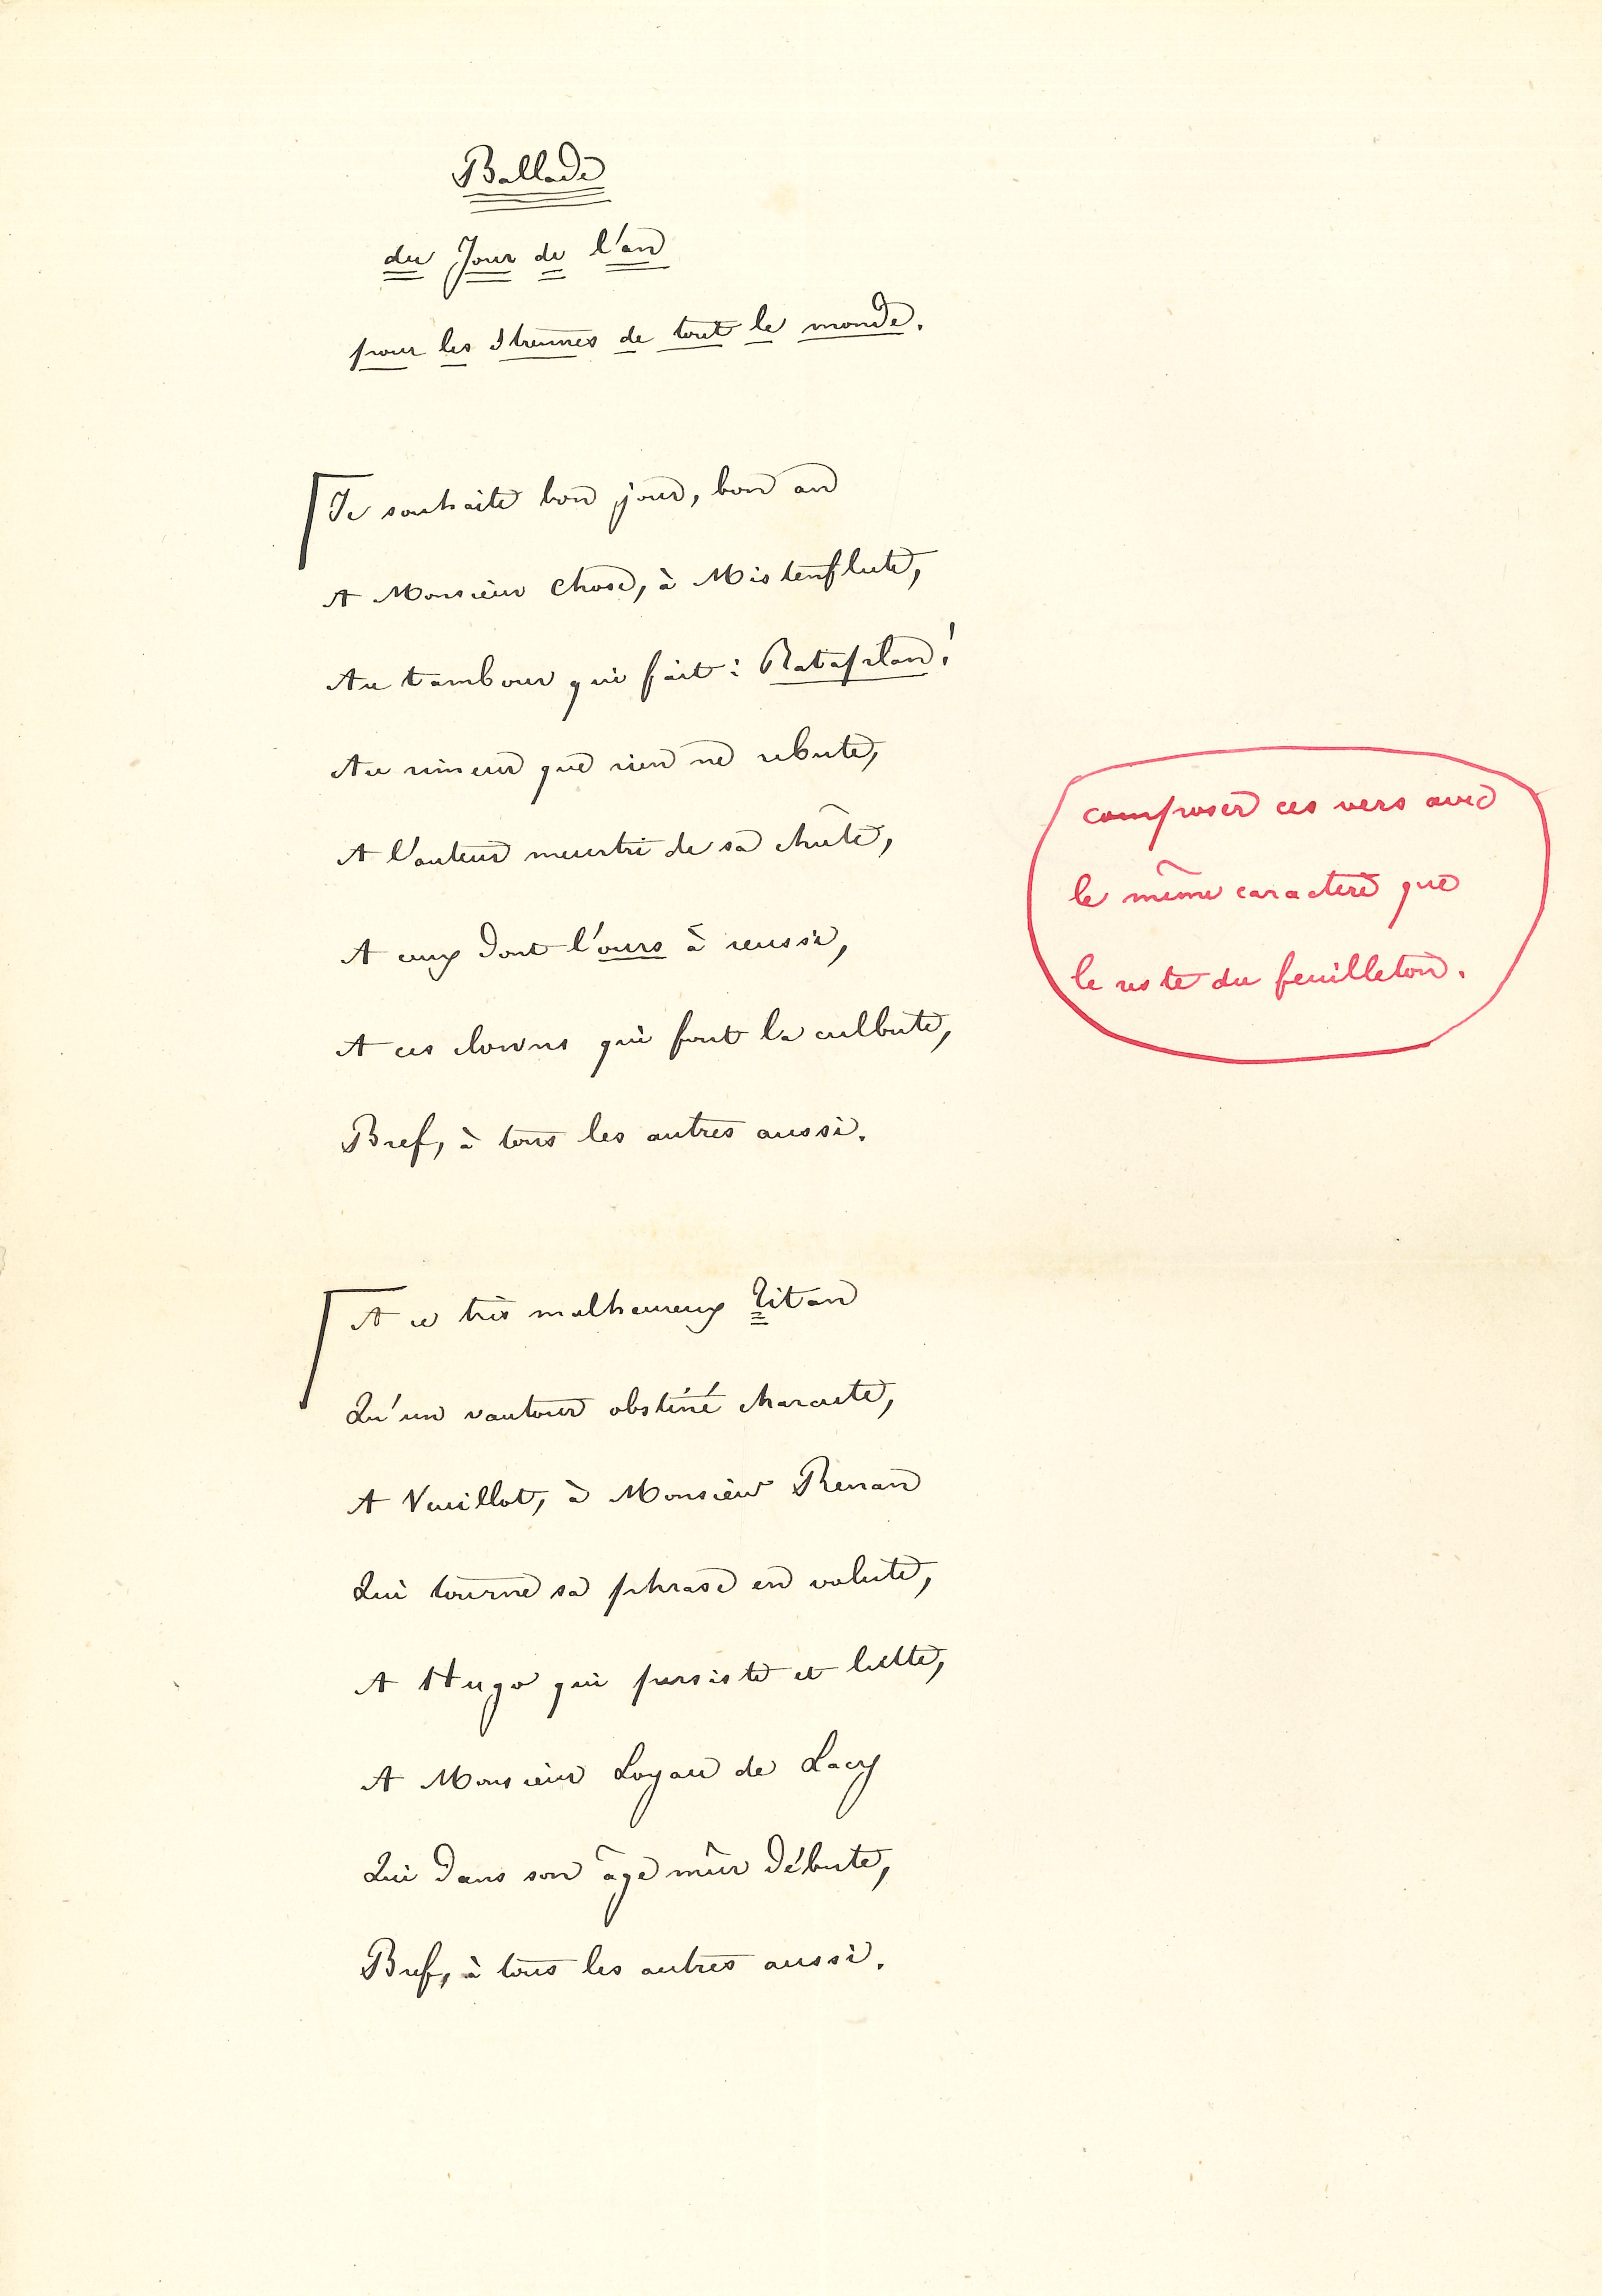 Ballade
du Jour de l'an
pour les Etrennes de tout le monde.
Je souhaite bon jour, bon an
A Monsieur Chose, à Mistenflute,
Au tambour qui fait : Rataplan !
Au rimeur que rien ne rebute,
A l'auteur meurtri de sa chûte,
A ceux dont l'ours à reussi,
A ces clowns qui font la culbute,
Bref, à tous les autres aussi.
composer ces vers avec
le même caractère que
le reste du feuilleton.
A ce très malheureux Titan
Qu'un vautour obstiné charcute,
A Veuillot, à Monsieur Renan
Qui tourne sa phrase en volute,
A Hugo qui persiste et lutte,
A Monsieur Loyau de Lacy
Qui dans son âge mûr débute,
Bref, à tous les autres aussi.